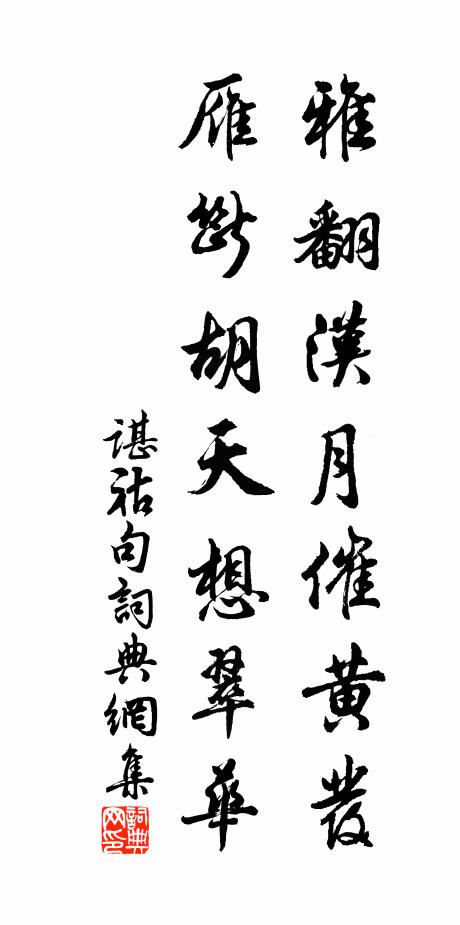 雅翻漢月催黃發
雁斷胡天想翠華
諶祜句詞典網集
詞典网印